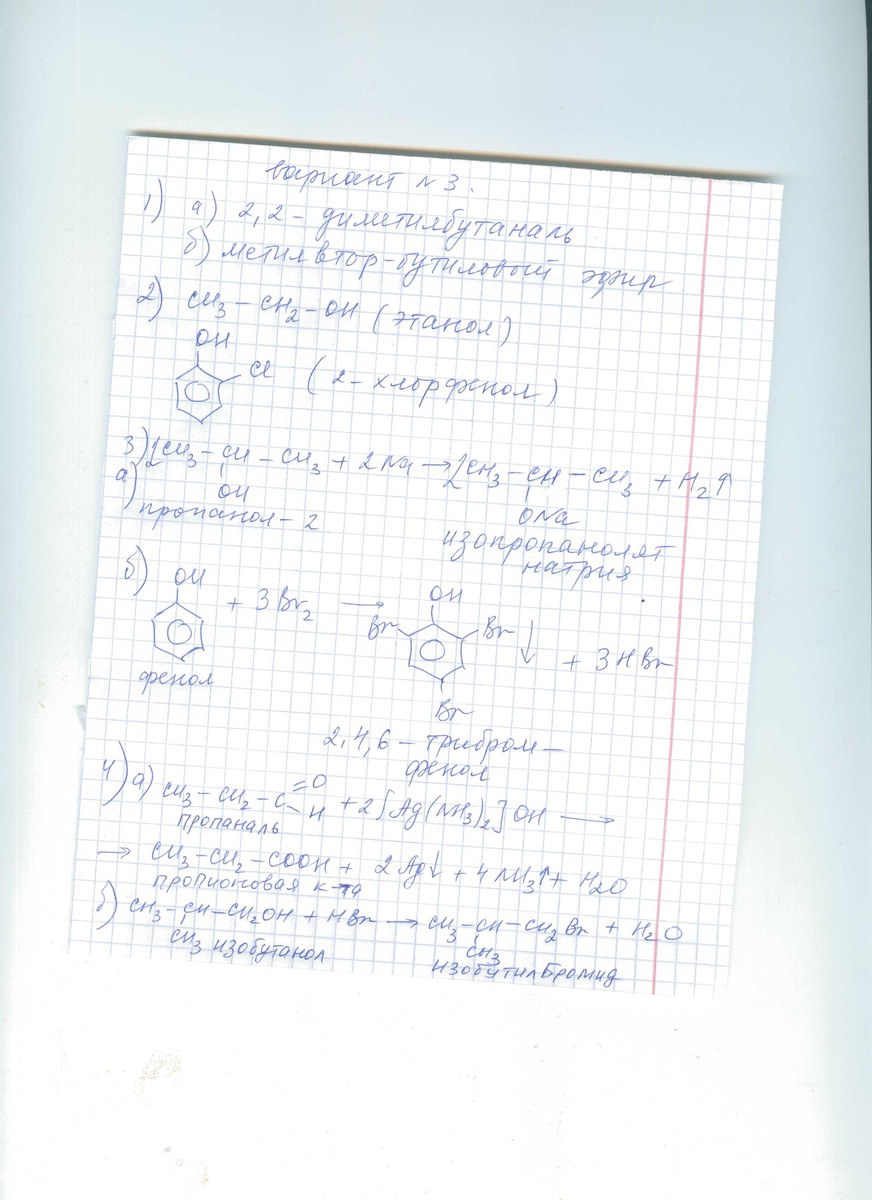 вариант №3.
1) а) 2,2-диметилбутаналь
б) метилвтор-бутиловый эфир
2) CH3-CH2-OH (этанол)
OH
Cl (2-хлорфенол)
3) а) 2CH3-CH-CH3 + 2Na → 2CH3-CH-CH3 + H2↑
OH ONa
пропанол-2 изопропанолят
натрия
б) OH + 3Br2 → OH Br Br ↓ + 3HBr
фенол Br
2,4,6-трибром-
фенол
4) а) CH3-CH2-C=O
H + 2[Ag(NH3)2]OH →
пропаналь
→ CH3-CH2-COOH + 2Ag↓ + 4NH3↑ + H2O
пропионовая к-та
б) CH3-CH-CH2OH + HBr → CH3-CH-CH2Br + H2O
CH3 изобутанол CH3
изобутилбромид